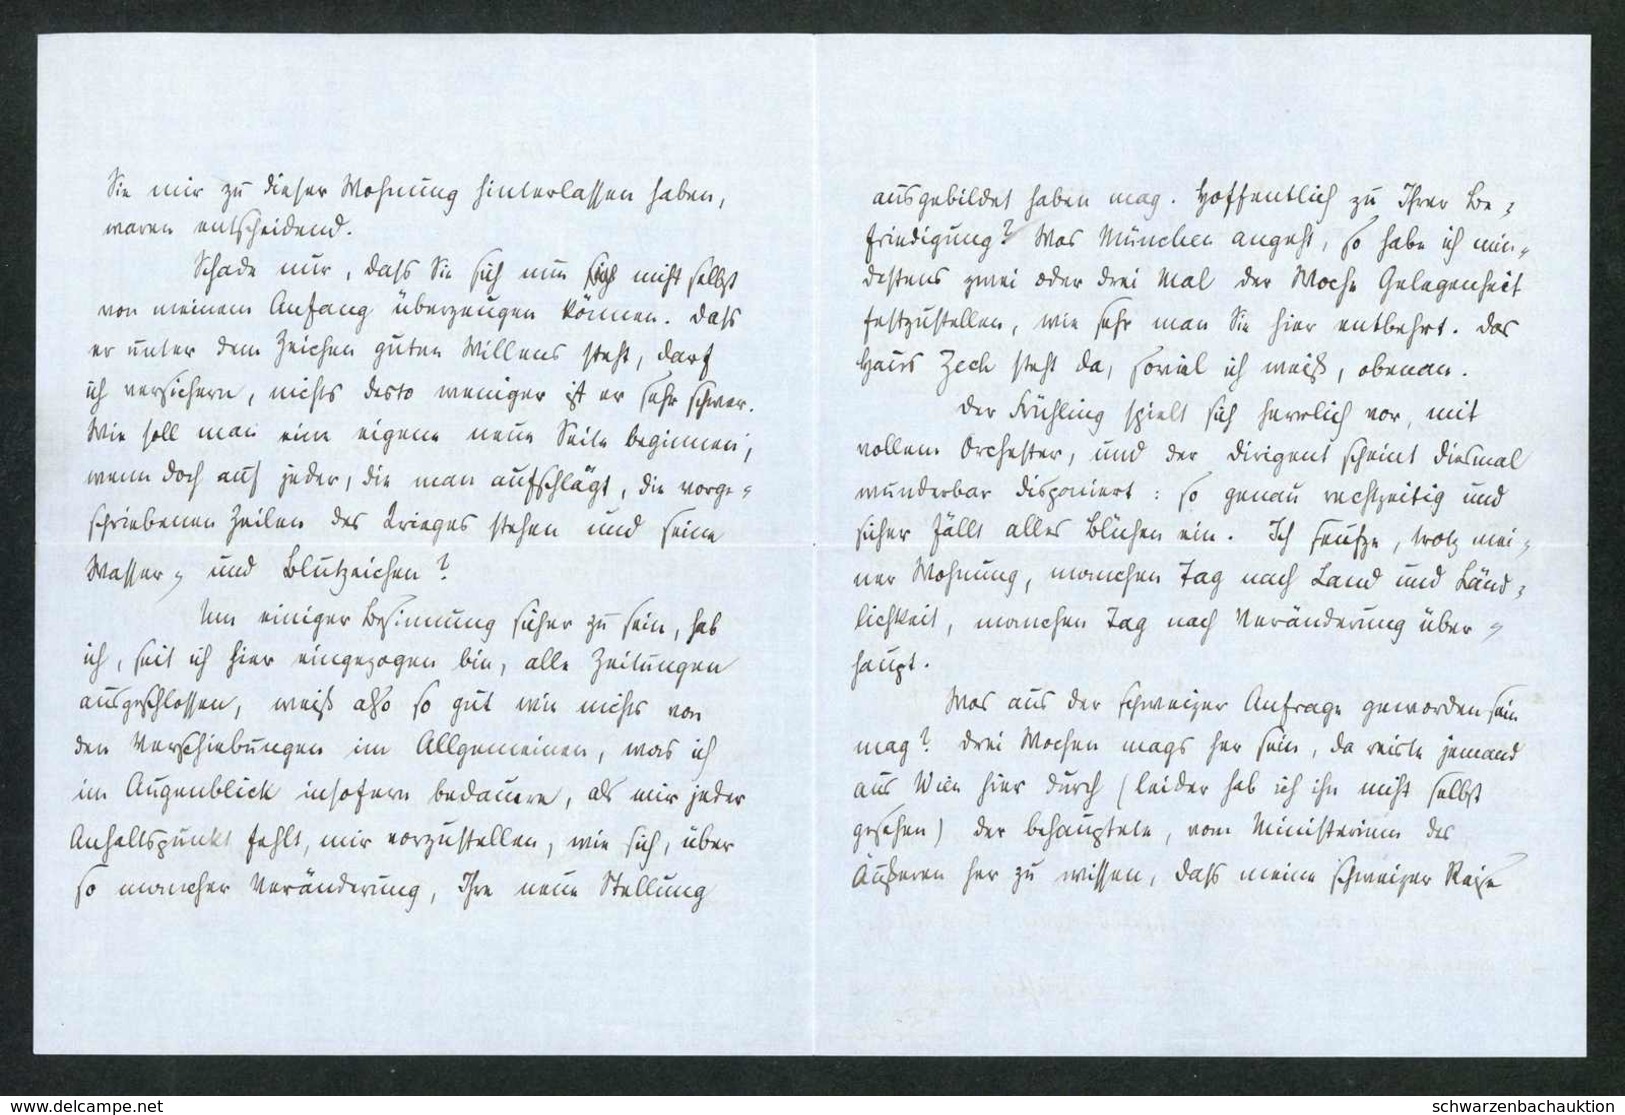 Sie mir zu dieser Wohnung hinterlassen haben,
waren entscheidend.
Schade nur, dass Sie sich nun nicht selbst
von meinem Anfang überzeugen können. Dass
er unter dem Zeichen guten Willens steht, darf
ich versichern, nichts desto weniger ist er sehr schwer.
Wie soll man eine eigene neue Seite beginnen,
wenn doch auf jeder, die man aufschlägt, die vorge-
schriebenen Zeilen des Krieges stehen und seine
Wasser- und Blutzeichen?
Um einiger Besinnung sicher zu sein, hab
ich, seit ich hier eingezogen bin, alle Zeitungen
ausgeschlossen, weiß also so gut wie nichts von
den Verschiebungen im Allgemeinen, was ich
im Augenblick insofern bedauere, als mir jeder
Anhaltspunkt fehlt, mir vorzustellen, wie sich, über
so mancher Veränderung, Ihre neue Stellung
ausgebildet haben mag. Hoffentlich zu Ihrer Be-
friedigung? Was München angeht, so habe ich min-
destens zwei oder drei Mal der Woche Gelegenheit
festzustellen, wie sehr man Sie hier entbehrt. Das
Haus Zech steht da, soviel ich weiß, obenan.
Der Frühling spielt sich herrlich vor, mit
vollem Orchester, und der Dirigent scheint diesmal
wunderbar disponiert: so genau rechtzeitig und
sicher fällt alles Blühen ein. Ich seufze, trotz mei-
ner Wohnung, manchen Tag nach Land und Länd-
lichkeit, manchen Tag nach Veränderung über-
haupt.
Was aus der schweizer Anfrage geworden sein
mag? Drei Wochen mags her sein, da reiste jemand
aus Wien hier durch (leider hab ich ihn nicht selbst
gesehen) der behauptete, vom Ministerium des
Äußeren her zu wissen, dass meine schweizer Reise
www.delcampe.net
schwarzenbachauktion